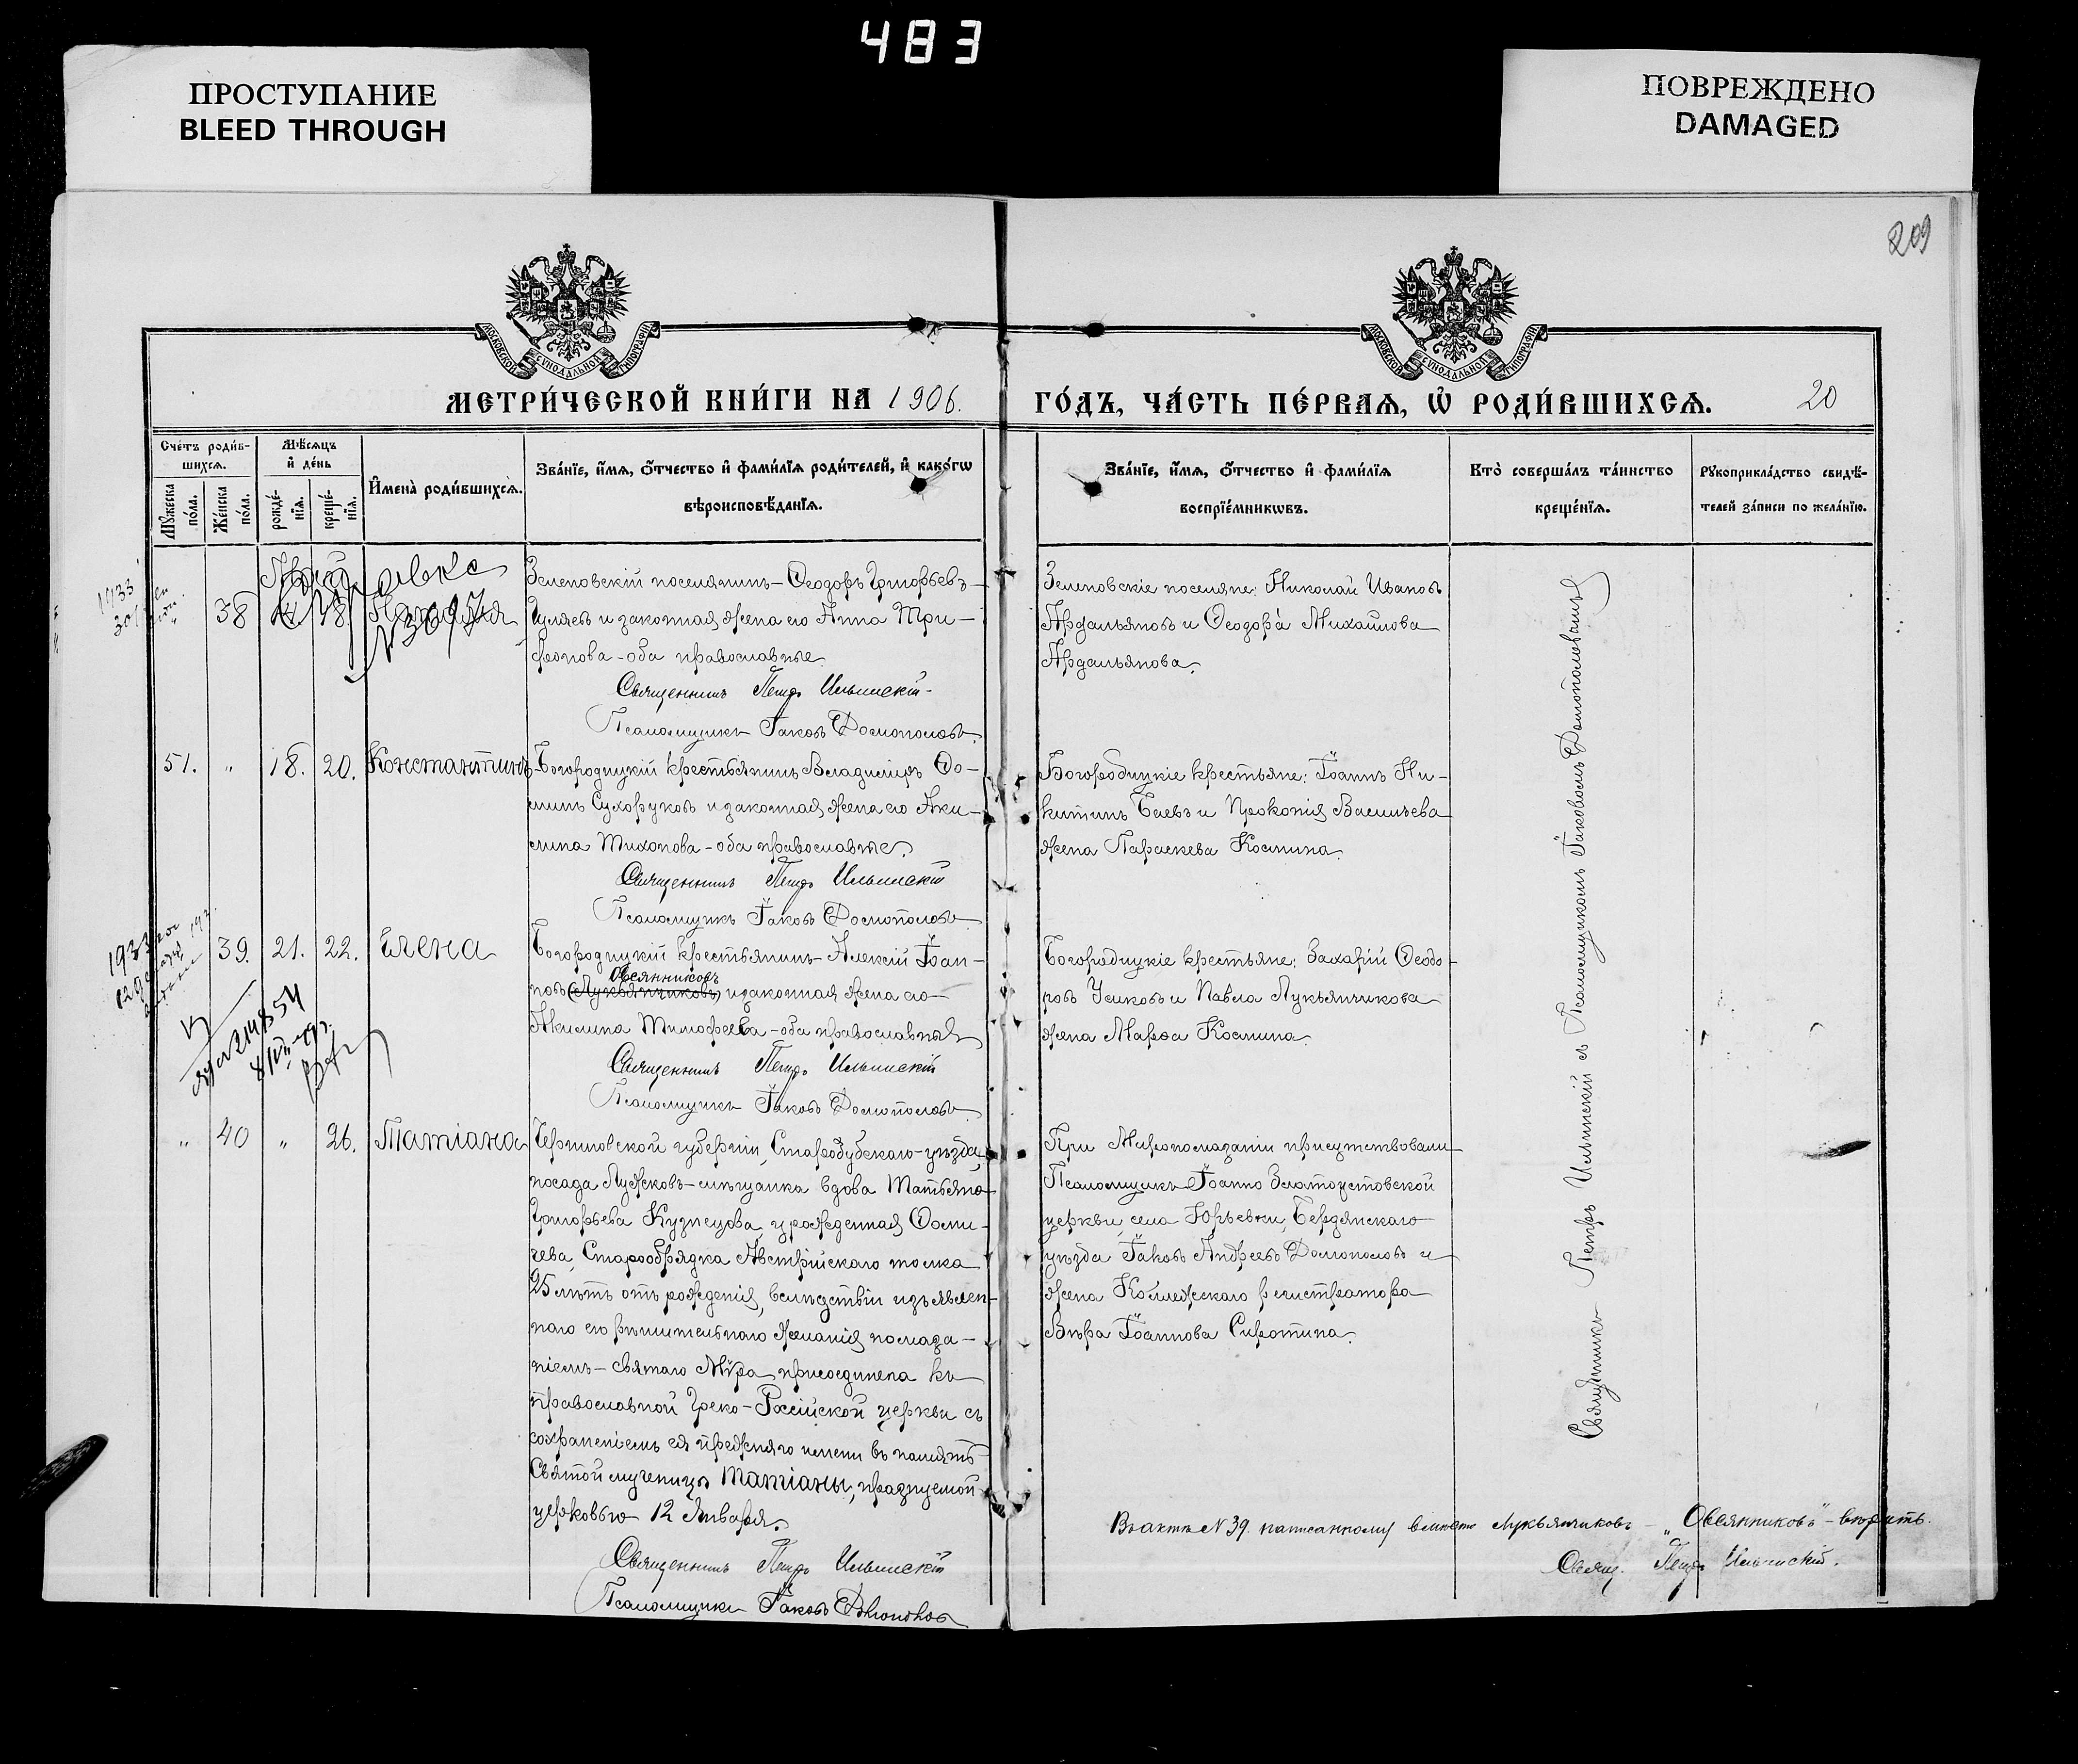 483
ПРОСТУПАНИЕ
BLEED THROUGH
ПОВРЕЖДЕНО
DAMAGED
209
МОСКОВСКОЙ СУНОДАЛЬНОЙ ТИПОГРАФІИ
МОСКОВСКОЙ СУНОДАЛЬНОЙ ТИПОГРАФІИ
МЕТРИ́ЧЕСКОЙ КНИ́ГИ НА 1906.
ГО́ДЪ, ЧА́СТЬ ПЕ́РВАѦ, Ѡ҆ РОДИ́ВШИХСѦ.
20
Сче́тъ роди́в-
шихсѧ.
Мѣ́сѧцъ
и҆ де́нь
Мꙋ́жеска
по́ла.
Же́нска
по́ла.
рожде́-
нїѧ.
креще́-
нїѧ.
И҆мена̀ роди́вшихсѧ.
Зва́нїе, и҆́мѧ, ѻ҆́тчество и҆ фами́лїѧ роди́телей, и҆ како́гѡ
вѣроисповѣ́данїѧ.
Зва́нїе, и҆́мѧ, ѻ҆́тчество и҆ фами́лїѧ
воспрїе́мникѡвъ.
Кто̀ соверша́лъ та́инство
креще́нїѧ.
Рꙋкоприкла́дство свидѣ́-
телей за́писи по жела́нїю.
1933
38
18.
Зеленовскій поселянинъ - Ѳеодоръ Григорьевъ
и законная жена его Анна Три-
фонова - оба православные.
Священникъ Петръ Ильинскій
Псаломщикъ Іаковъ Домополовъ
Зеленовскіе поселяне: Николай Ивановъ
Ардальяновъ и Ѳеодора Михаилова
Ардальянова.
51. " 18. 20. Константинъ
Богородицкій крестьянинъ Владиміръ Ѳо-
минъ Сухоруковъ и законная жена его Аки-
лина Тихонова - оба православные.
Священникъ Петръ Ильинскій
Псаломщикъ Іаковъ Домополовъ
Богородицкіе крестьяне: Іоаннъ Ни-
китинъ Баевъ и Прокопія Васильева
жена Параскева Космина.
1933
39. 21. 22. Елена
Богородицкій крестьянинъ Алексій Іоан-
Овсянниковъ
новъ (Лукьянчиковъ) и законная жена его
Акилина Тимофеева - оба православные
Священникъ Петръ Ильинскій
Псаломщикъ Іаковъ Домополовъ
Богородицкіе крестьяне: Захарій Ѳеодо-
ровъ Усиковъ и Павла Лукьянчикова
жена Марѳа Космина.
" 40 " 26. Татіана
Черниговской губерніи, Стародубскаго уѣзда,
посада Лужковъ мѣщанка вдова Татьяна
Григорьева Кузнецова, урожденная Ѳоми-
чева, Старообрядка Австрійскаго толка
25 лѣтъ отъ рожденія, вслѣдствіи изъявлен-
наго ею рѣшительнаго желанія помаза-
ніемъ святаго Мѵра присоединена къ
православной Греко-Россійской церкви съ
сохраненіемъ ея прежняго имени въ память
Святой мученицы Татіаны, празднуемой
церковью 12 Января.
Священникъ Петръ Ильинскій
Псаломщикъ Іаковъ Домополовъ
При Мѵропомазаніи присутствовали
Псаломщикъ Іоанно Златоустовской
церкви, села Юрьевки, Бердянскаго
уѣзда Іаковъ Андреевъ Домополовъ и
жена Коллежскаго регистратора
Вѣра Іоаннова Сиротина.
Священникъ Петръ Ильинскій съ Псаломщикомъ Іаковомъ Домополовымъ
Въ актѣ № 39. написанному вмѣсто Лукьянчиковъ - „Овсянниковъ" - вѣрить.
Свящ. Петръ Ильинскій.